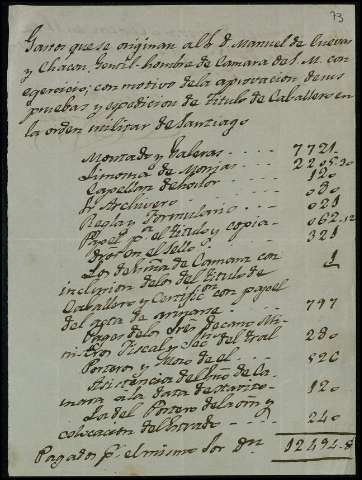 73
Gastos que se originan al S. D. Manuel de Cuevas
y Chacon, Gentil-hombre de Camara de S. M. con
egercicio, con motivo de la aprovacion de sus
pruebas y espedicion de Titulo de Caballero en
la orden militar de Santiago
Montado y Galeras 7721
Limosna de Monjas 2205.30
Capellan de honor 120
Archivero
Regla y Formulario 021
Papel pa. el titulo y copia 062.12
en el sello 321
Los de Camara con
inclusion de los del titulo de
Caballero y Certificon. con papel
del acta de 797
Pagos de los Sres. Decano Mi-
nistros Fiscal y Secrio. del Tral
Portero y Mozo de el 520
Asistencia del de Ca-
mara a la
Los del Portero de la orn. y
colocacion del 240
Pagados pr. el mismo Sor. Dn. 12494.8